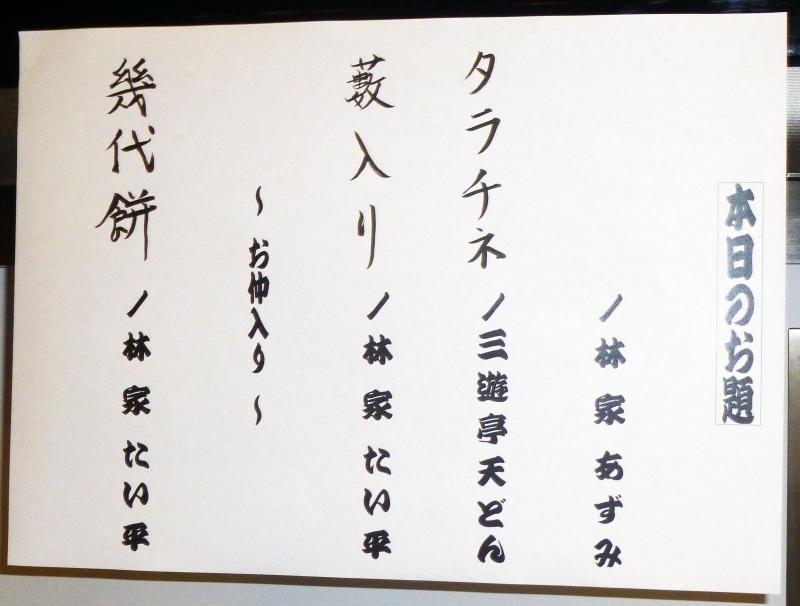 本日のお題
／林家あずみ
タラチネ／三遊亭天どん
藪入り／林家たい平
～お仲入り～
幾代餅／林家たい平